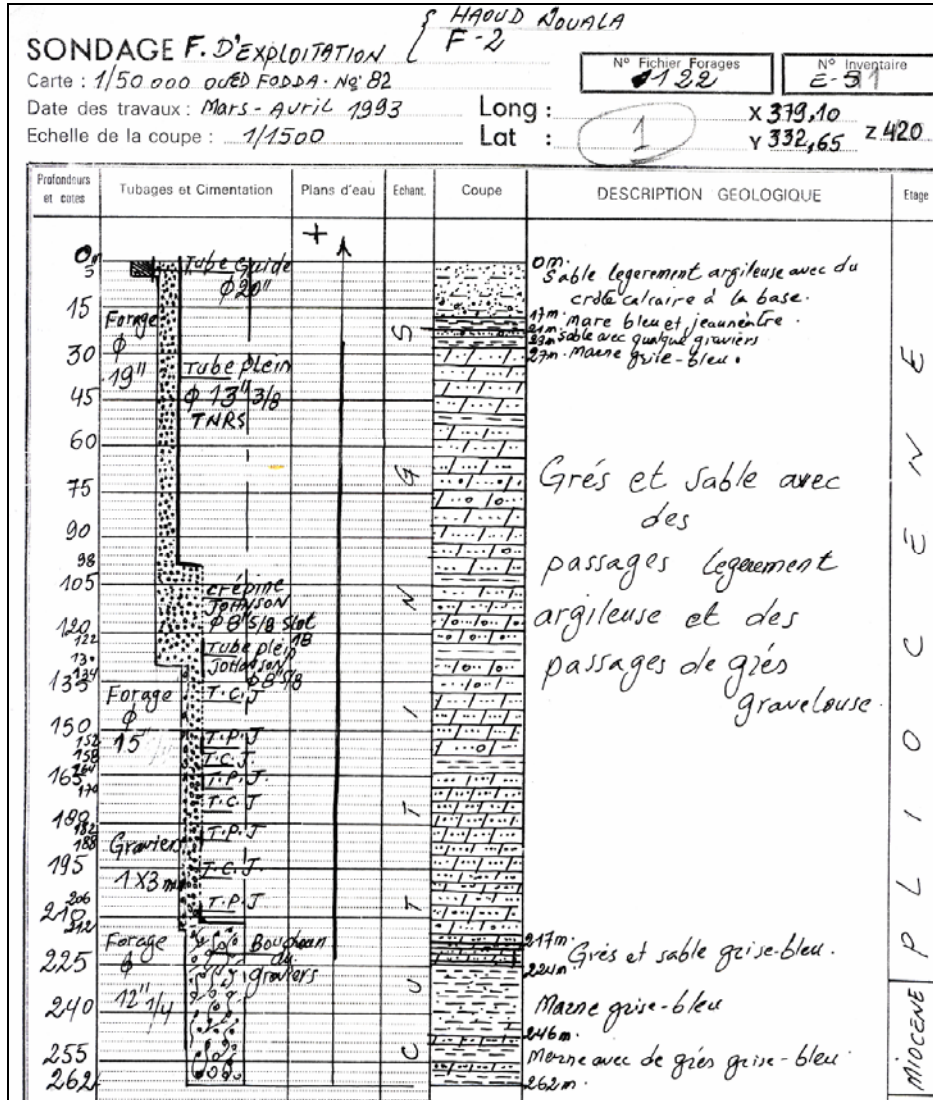 SONDAGE F. D'EXPLOITATION { HAOUD NOUALA
F-2
Carte : 1/50 000 OUED FODDA. Nº 82
Date des travaux : Mars - Avril 1993
Echelle de la coupe : 1/1500
Long :
Lat :
1
Nº Fichier Forages
122
Nº Inventaire
X 379,10
Y 332,65
Z 420
Profondeurs et cotes
Tubages et Cimentation
Plans d'eau
Echant.
Coupe
DESCRIPTION GEOLOGIQUE
Etage
+
0m
5
15
30
45
60
75
90
98
105
120
122
130
134
135
150
152
158
164
165
170
180
182
188
195
206
210
212
225
240
255
262
Tube Guide
φ 20"
Forage
φ
19"
Tube plein
φ 13" 3/8
TNRS
crépine
JOHNSON
φ 8" 5/8 slot
18
Tube plein
JOHNSON
φ 8" 5/8
T.C.J
Forage
φ
15"
T.P.J
T.C.J.
T.P.J.
T.C.J
T.P.J
Gravier
1 X 3 mm
T.C.J
T.P.J
Forage
φ
12" 1/4
Bouchon
du
graviers
CUTTINGS
0m.
Sable legerement argileuse avec du
croûte calcaire à la base.
17m. Mare bleu et jeaunêntre.
21m.
23m Sable avec quelque graviers
27m. Marne grise-bleu.
Grés et Sable avec
des
passages legerement
argileuse et des
passages de grés
gravelouse.
217m.
Grés et sable grise-bleu.
224m
Marne grise-bleu
246m.
Merne avec de grés grise-bleu.
262m.
PLIOCÉNE
MIOCENE